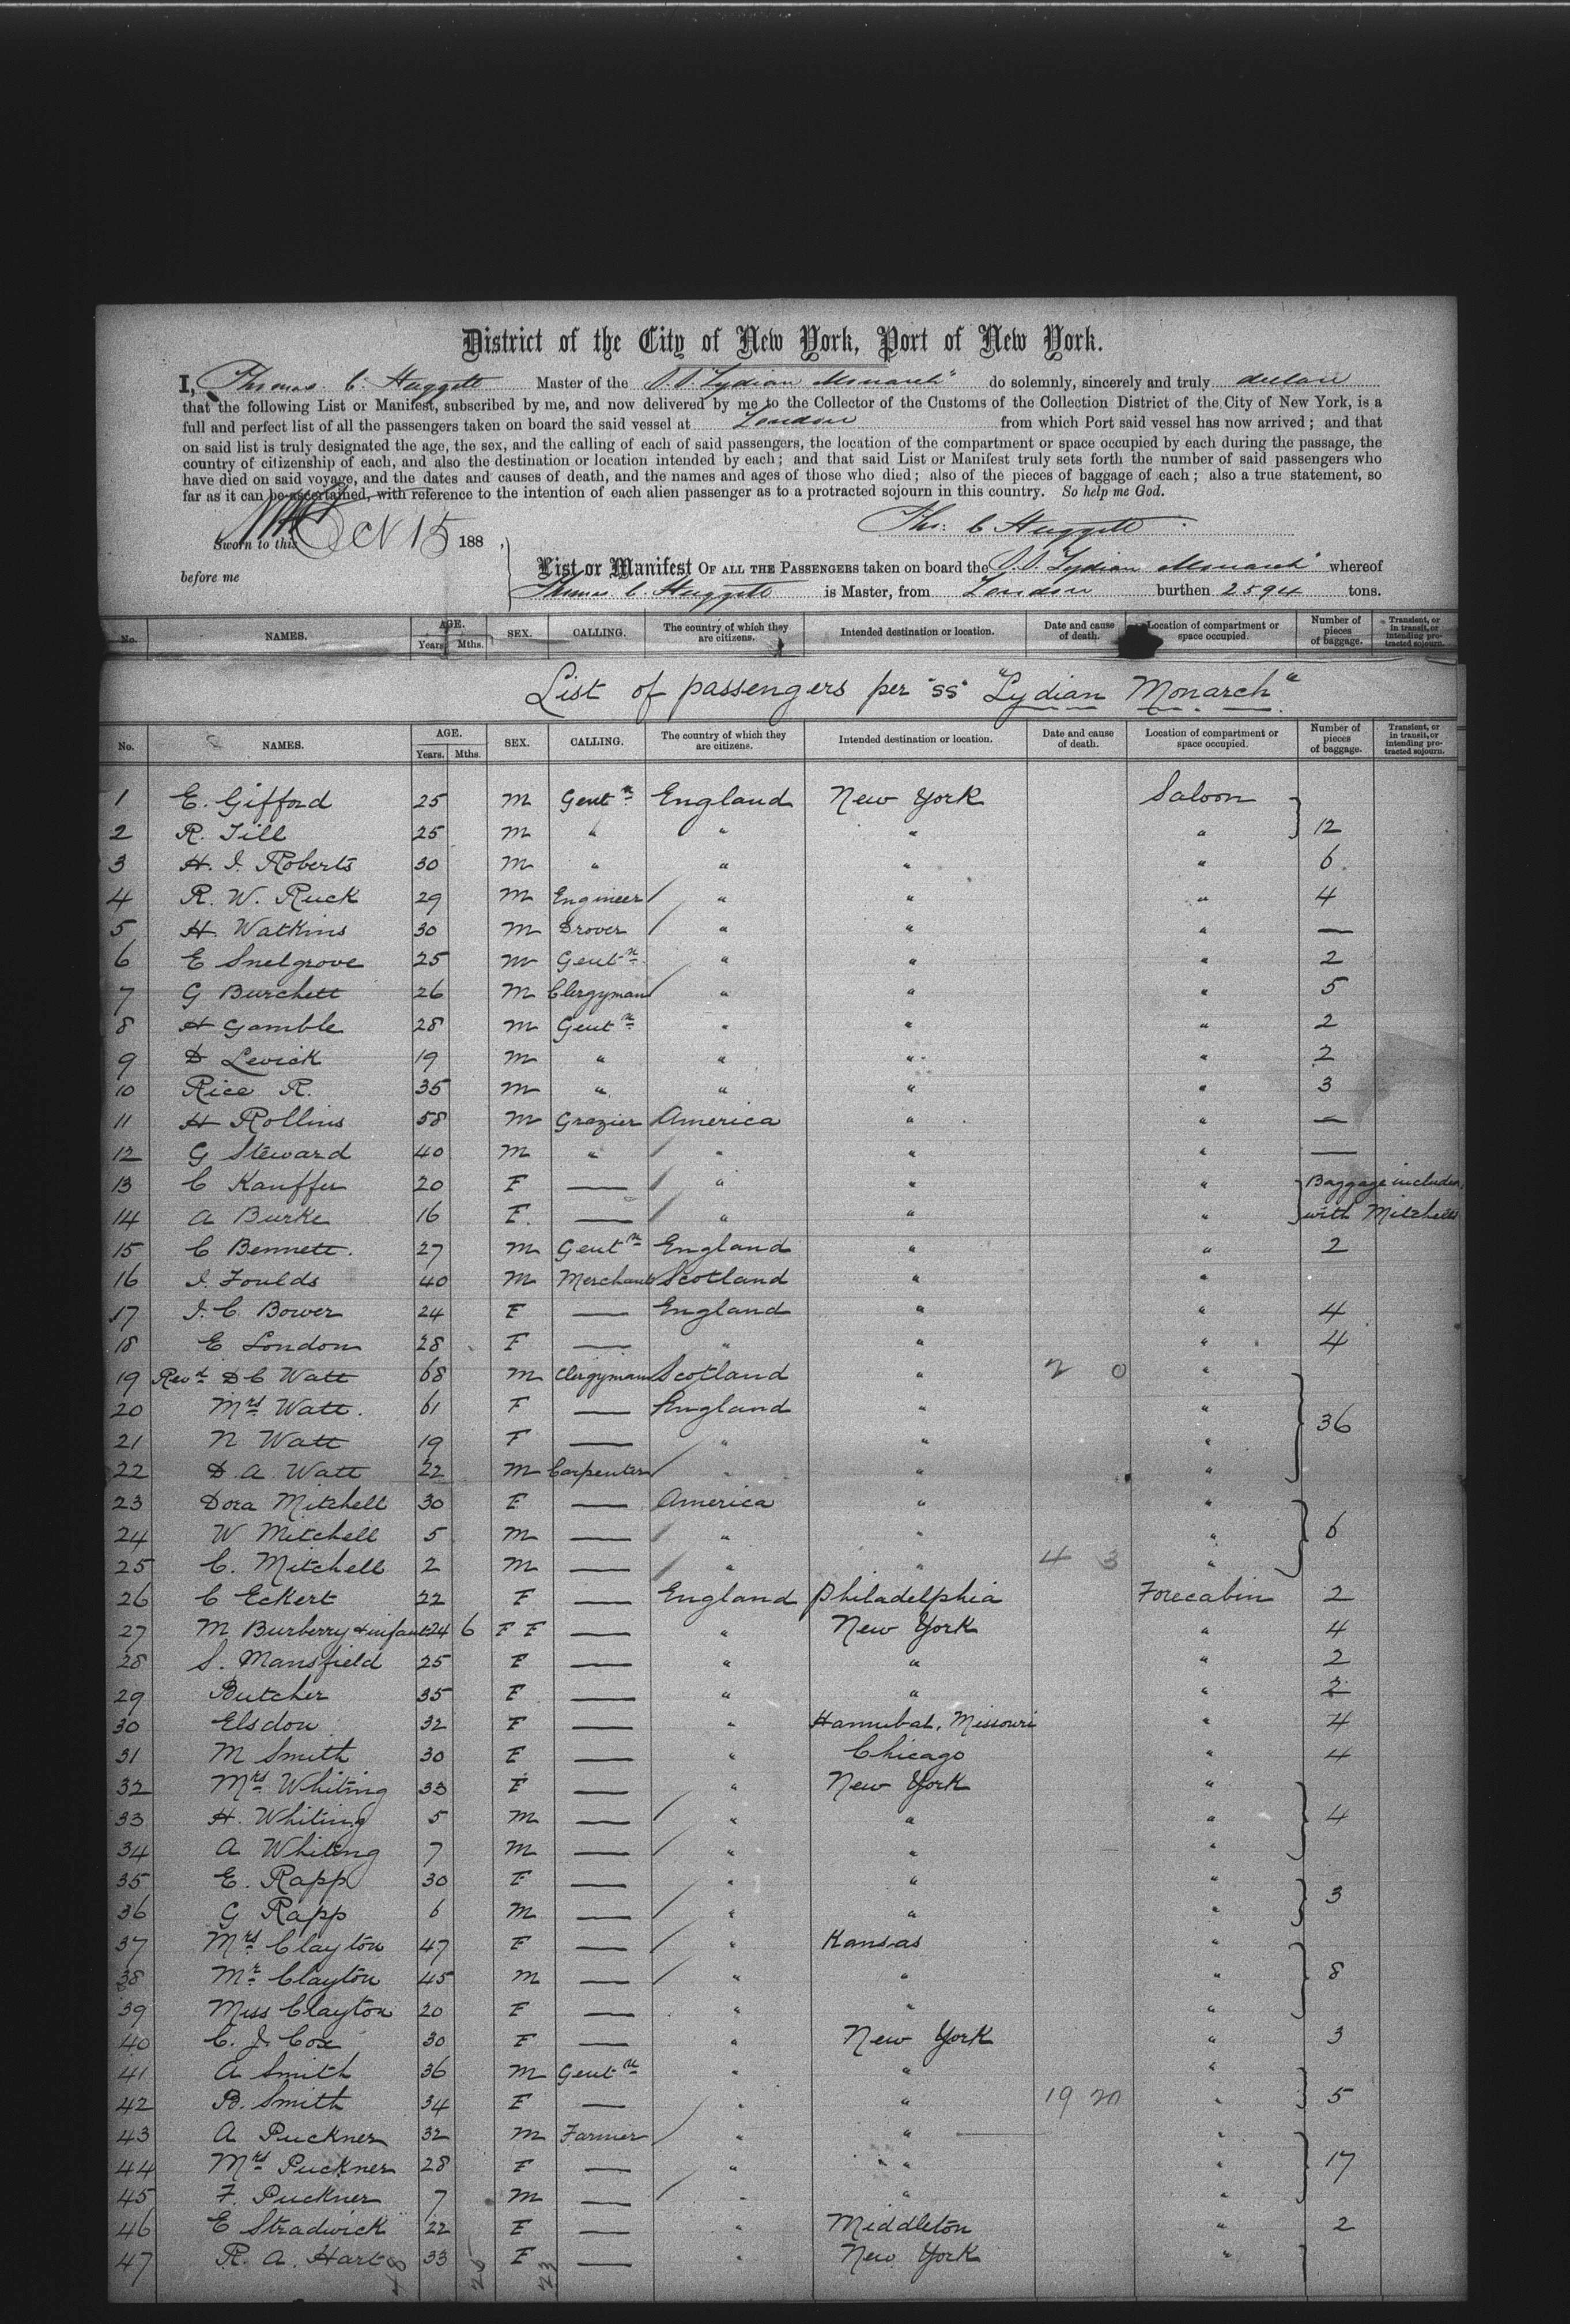 District of the City of New York, Port of New York.
I, Thomas C. Huggett Master of the S.S. "Lydian Monarch" do solemnly, sincerely and truly declare
that the following List or Manifest, subscribed by me, and now delivered by me to the Collector of the Customs of the Collection District of the City of New York, is a
full and perfect list of all the passengers taken on board the said vessel at London from which Port said vessel has now arrived; and that
on said list is truly designated the age, the sex, and the calling of each of said passengers, the location of the compartment or space occupied by each during the passage, the
country of citizenship of each, and also the destination or location intended by each; and that said List or Manifest truly sets forth the number of said passengers who
have died on said voyage, and the dates and causes of death, and the names and ages of those who died; also of the pieces of baggage of each; also a true statement, so
far as it can be ascertained, with reference to the intention of each alien passenger as to a protracted sojourn in this country. So help me God.
Thos. C Huggett
Sworn to this Oct 15 188 ,
before me
List or Manifest OF ALL THE PASSENGERS taken on board the S.S. "Lydian Monarch" whereof
Thomas C. Huggett is Master, from London burthen 2594 tons.
No. NAMES. AGE. Years. Mths. SEX. CALLING. The country of which they are citizens. Intended destination or location. Date and cause of death. Location of compartment or space occupied. Number of pieces of baggage. Transient, or in transit, or intending protracted sojourn.
List of passengers per "SS" "Lydian Monarch"
No. NAMES. AGE. Years. Mths. SEX. CALLING. The country of which they are citizens. Intended destination or location. Date and cause of death. Location of compartment or space occupied. Number of pieces of baggage. Transient, or in transit, or intending protracted sojourn.
1 E. Gifford 25 M Gentn England New York Saloon
2 R. Till 25 M " " " " 12
3 H. I. Roberts 30 M " " " " 6
4 R. W. Ruck 29 M Engineer " " " 4
5 H. Watkins 30 M Drover " " " —
6 E Snelgrove 25 M Gentn " " " 2
7 G Burchett 26 M Clergyman " " " 5
8 H Gamble 28 M Gentn " " " 2
9 D Levick 19 M " " " " 2
10 Rice R. 35 M " " " " 3
11 H Rollins 58 M Grazier America " " —
12 G Steward 40 M " " " " —
13 C Kauffer 20 F — " " " Baggage included
14 A Burke 16 F. — " " " with Mitchells
15 C Bennett. 27 M Gentn England " " 2
16 I. Foulds 40 M Merchant Scotland " "
17 I. C. Bower 24 F — England " " 4
18 E London 28 F — " " " 4
19 Revd D C Watt 68 M Clergyman Scotland " 2 0 "
20 Mrs Watt. 61 F — England " " 36
21 N Watt 19 F — " " "
22 D. A. Watt 22 M Carpenter " " "
23 Dora Mitchell 30 F — America " "
24 W Mitchell 5 M — " " " 6
25 C. Mitchell 2 M — " " 4 3 "
26 C Eckert 22 F — England Philadelphia Forecabin 2
27 M Burberry & infant 24 6 F F — " New York " 4
28 S. Mansfield 25 F — " " " 2
29 Butcher 35 F — " " " 2
30 Elsdon 32 F — " Hannibal, Missouri " 4
31 M Smith 30 F — " Chicago " 4
32 Mrs Whiting 33 F — " New York "
33 H. Whiting 5 M — " " " 4
34 A Whiting 7 M — " " "
35 E. Rapp 30 F — " " " 3
36 G Rapp 6 M — " " "
37 Mrs Clayton 47 F — " Kansas "
38 Mr Clayton 45 M — " " " 8
39 Miss Clayton 20 F — " " "
40 C. J. Cox 30 F — " New York " 3
41 A Smith 36 M Gentn " " "
42 B. Smith 34 F — " " 19 20 " 5
43 A Puckner 32 M Farmer " " "
44 Mrs Puckner 28 F — " " " 17
45 F. Puckner 7 M — " " "
46 E Stradwick 22 F — " Middleton " 2
47 R. A. Hart 33 F — " New York "
48 25 23